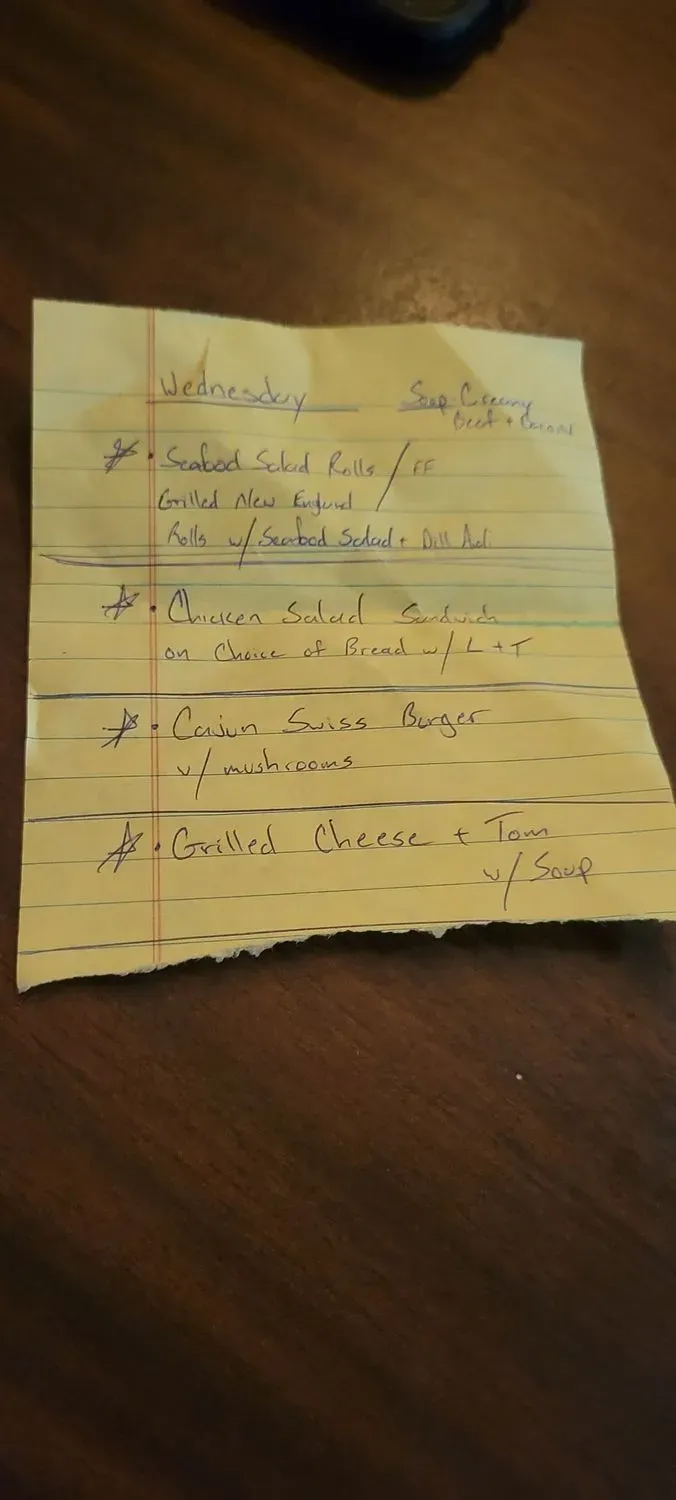 Wednesday
Soup-Creamy
Beef +
Seafood Salad Rolls / FF
Grilled New England
Rolls w/ Seafood Salad + Dill
Chicken Salad Sandwich
on Choice of Bread w/ L + T
Cajun Swiss Burger
w/ mushrooms
Grilled Cheese + Tom
w/ Soup